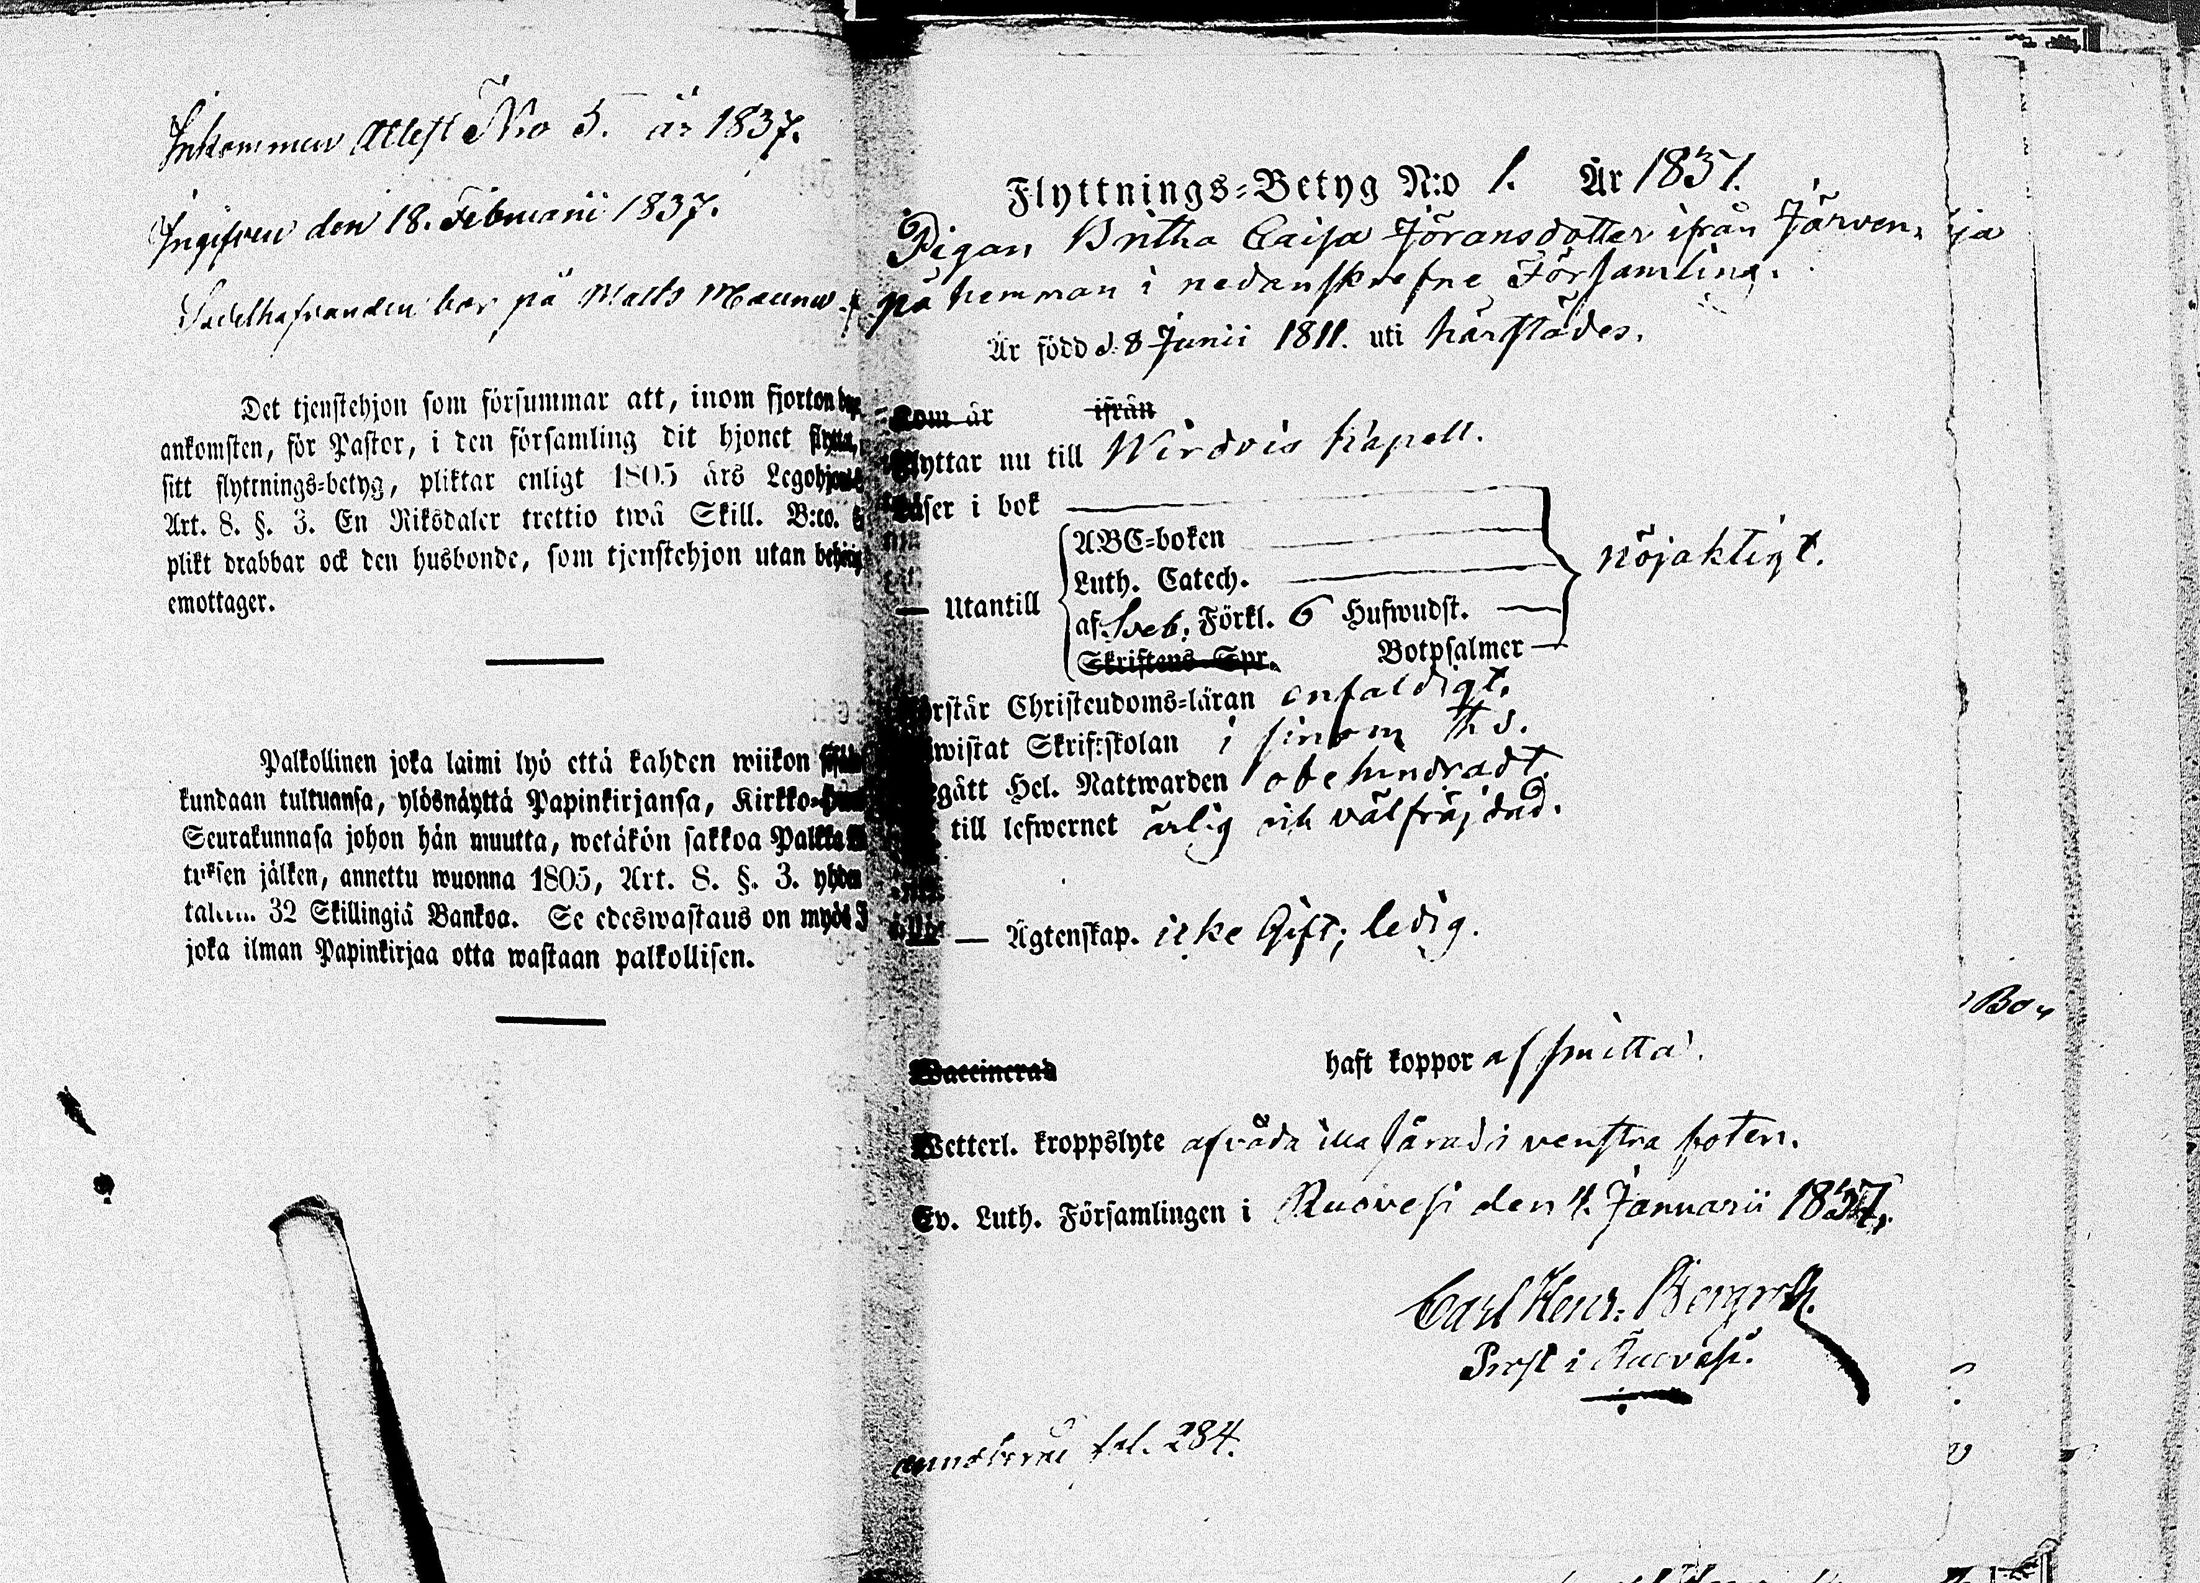 Inkommen Attest No 5. år 1837.
Ingifven den 18. Februarii 1837.
Innehafvanden bor på Matts Maunu
Det tjenstehjon som försummar att, inom fjorton
ankomsten, för Pastor, i den församling dit hjonet flytta,
sitt flyttnings-betyg, pliktar enligt 1805 års
Art. 8. §. 3. En Riksdaler trettio twå Skill. B:co.
plikt drabbar ock den husbonde, som tjenstehjon utan
emottager.
Palkollinen joka laimi lyö että kahden wiikon
kundaan tultuansa, ylösnäyttä Papinkirjansa, Kirkko-
Seurakunnasa johon hän muutta, wetäkön sakkoa
tuksen jälken, annettu wuonna 1805, Art. 8. §. 3. yhden
talarin 32 Skillingiä Bankoa. Se edeswastaus on myös
joka ilman Papinkirjaa otta wastaan palkollisen.
Flyttnings-Betyg N:o 1. År 1837.
Pigan Britha Caisa Jöransdotter ifrån Järven-
på hemman i nedanskrefne Församling.
Är född d. 8 Junii 1811. uti härstädes.
Kom år ifrån
Flyttar nu till Wirdois Kapell.
Läser i bok
ABC-boken
Luth. Catech.
nöjaktigt.
— Utantill
af Sveb. Förkl. 6 Hufwudst.
Skriftens Spr. Botpsalmer
Förstår Christendoms-läran enfaldigt.
wistat Skriftskolan i sinom tid.
gått Hel. Nattwarden obehindradt.
till lefwernet ärlig och välfräjdad.
— Ägtenskap. icke Gift; ledig.
Waccinerad haft koppor af smitta.
Wetterl. kroppslyte af våda illa sårad i venstra foten.
Ev. Luth. Församlingen i Ruovesi den 4. Januarii 1837.
Carl Henr. Bergroth.
Prost i Ruovesi.
fol. 284.